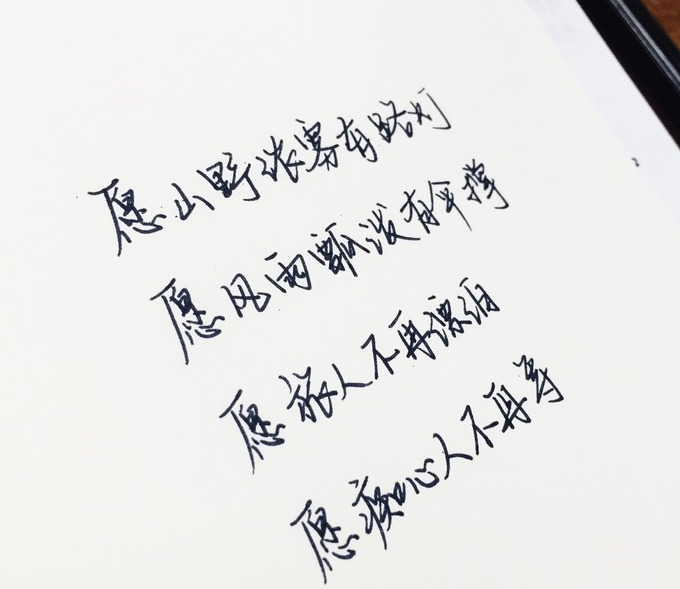 愿山野浓雾有路灯
愿风雨瓢泼有伞撑
愿旅人不再漂泊
愿痴心人不再等